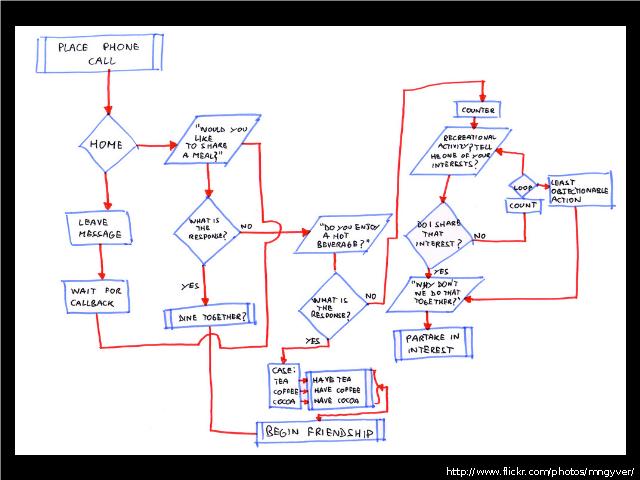 PLACE PHONE
CALL
HOME
LEAVE
MESSAGE
WAIT FOR
CALLBACK
"WOULD YOU
LIKE
TO SHARE
A MEAL?"
WHAT IS
THE
RESPONSE?
NO
YES
DINE TOGETHER?
"DO YOU ENJOY
A HOT
BEVERAGE?"
WHAT IS
THE
RESPONSE?
NO
YES
CASE:
TEA
COFFEE
COCOA
HAVE TEA
HAVE COFFEE
HAVE COCOA
BEGIN FRIENDSHIP
COUNTER
RECREATIONAL
ACTIVITY? TELL
ME ONE OF YOUR
INTERESTS?"
LOOP
COUNT
LEAST
OBJECTIONABLE
ACTION
DO I SHARE
THAT
INTEREST?
NO
YES
"WHY DON'T
WE DO THAT
TOGETHER?"
PARTAKE IN
INTEREST
http://www.flickr.com/photos/mngyver/